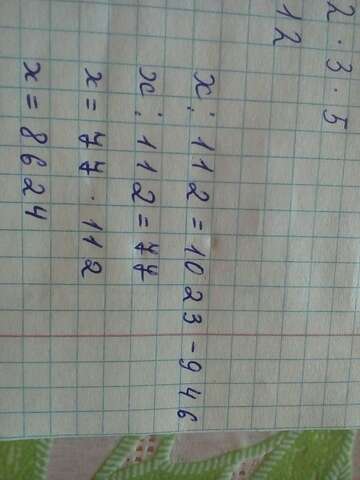 2 · 3 · 5
12
x : 112 = 1023 - 946
x : 112 = 77
x = 77 · 112
x = 8624